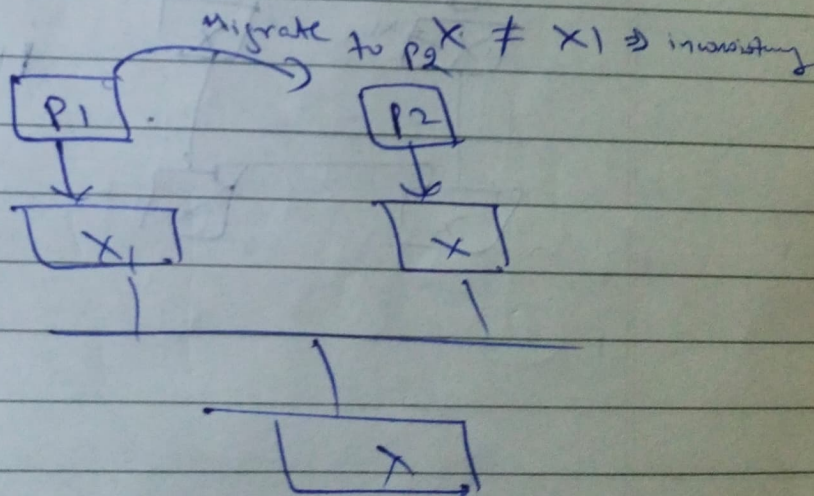 Migrate to P2 X ≠ X1 ⇒ inconsistency
P1 P2
X1 X
X